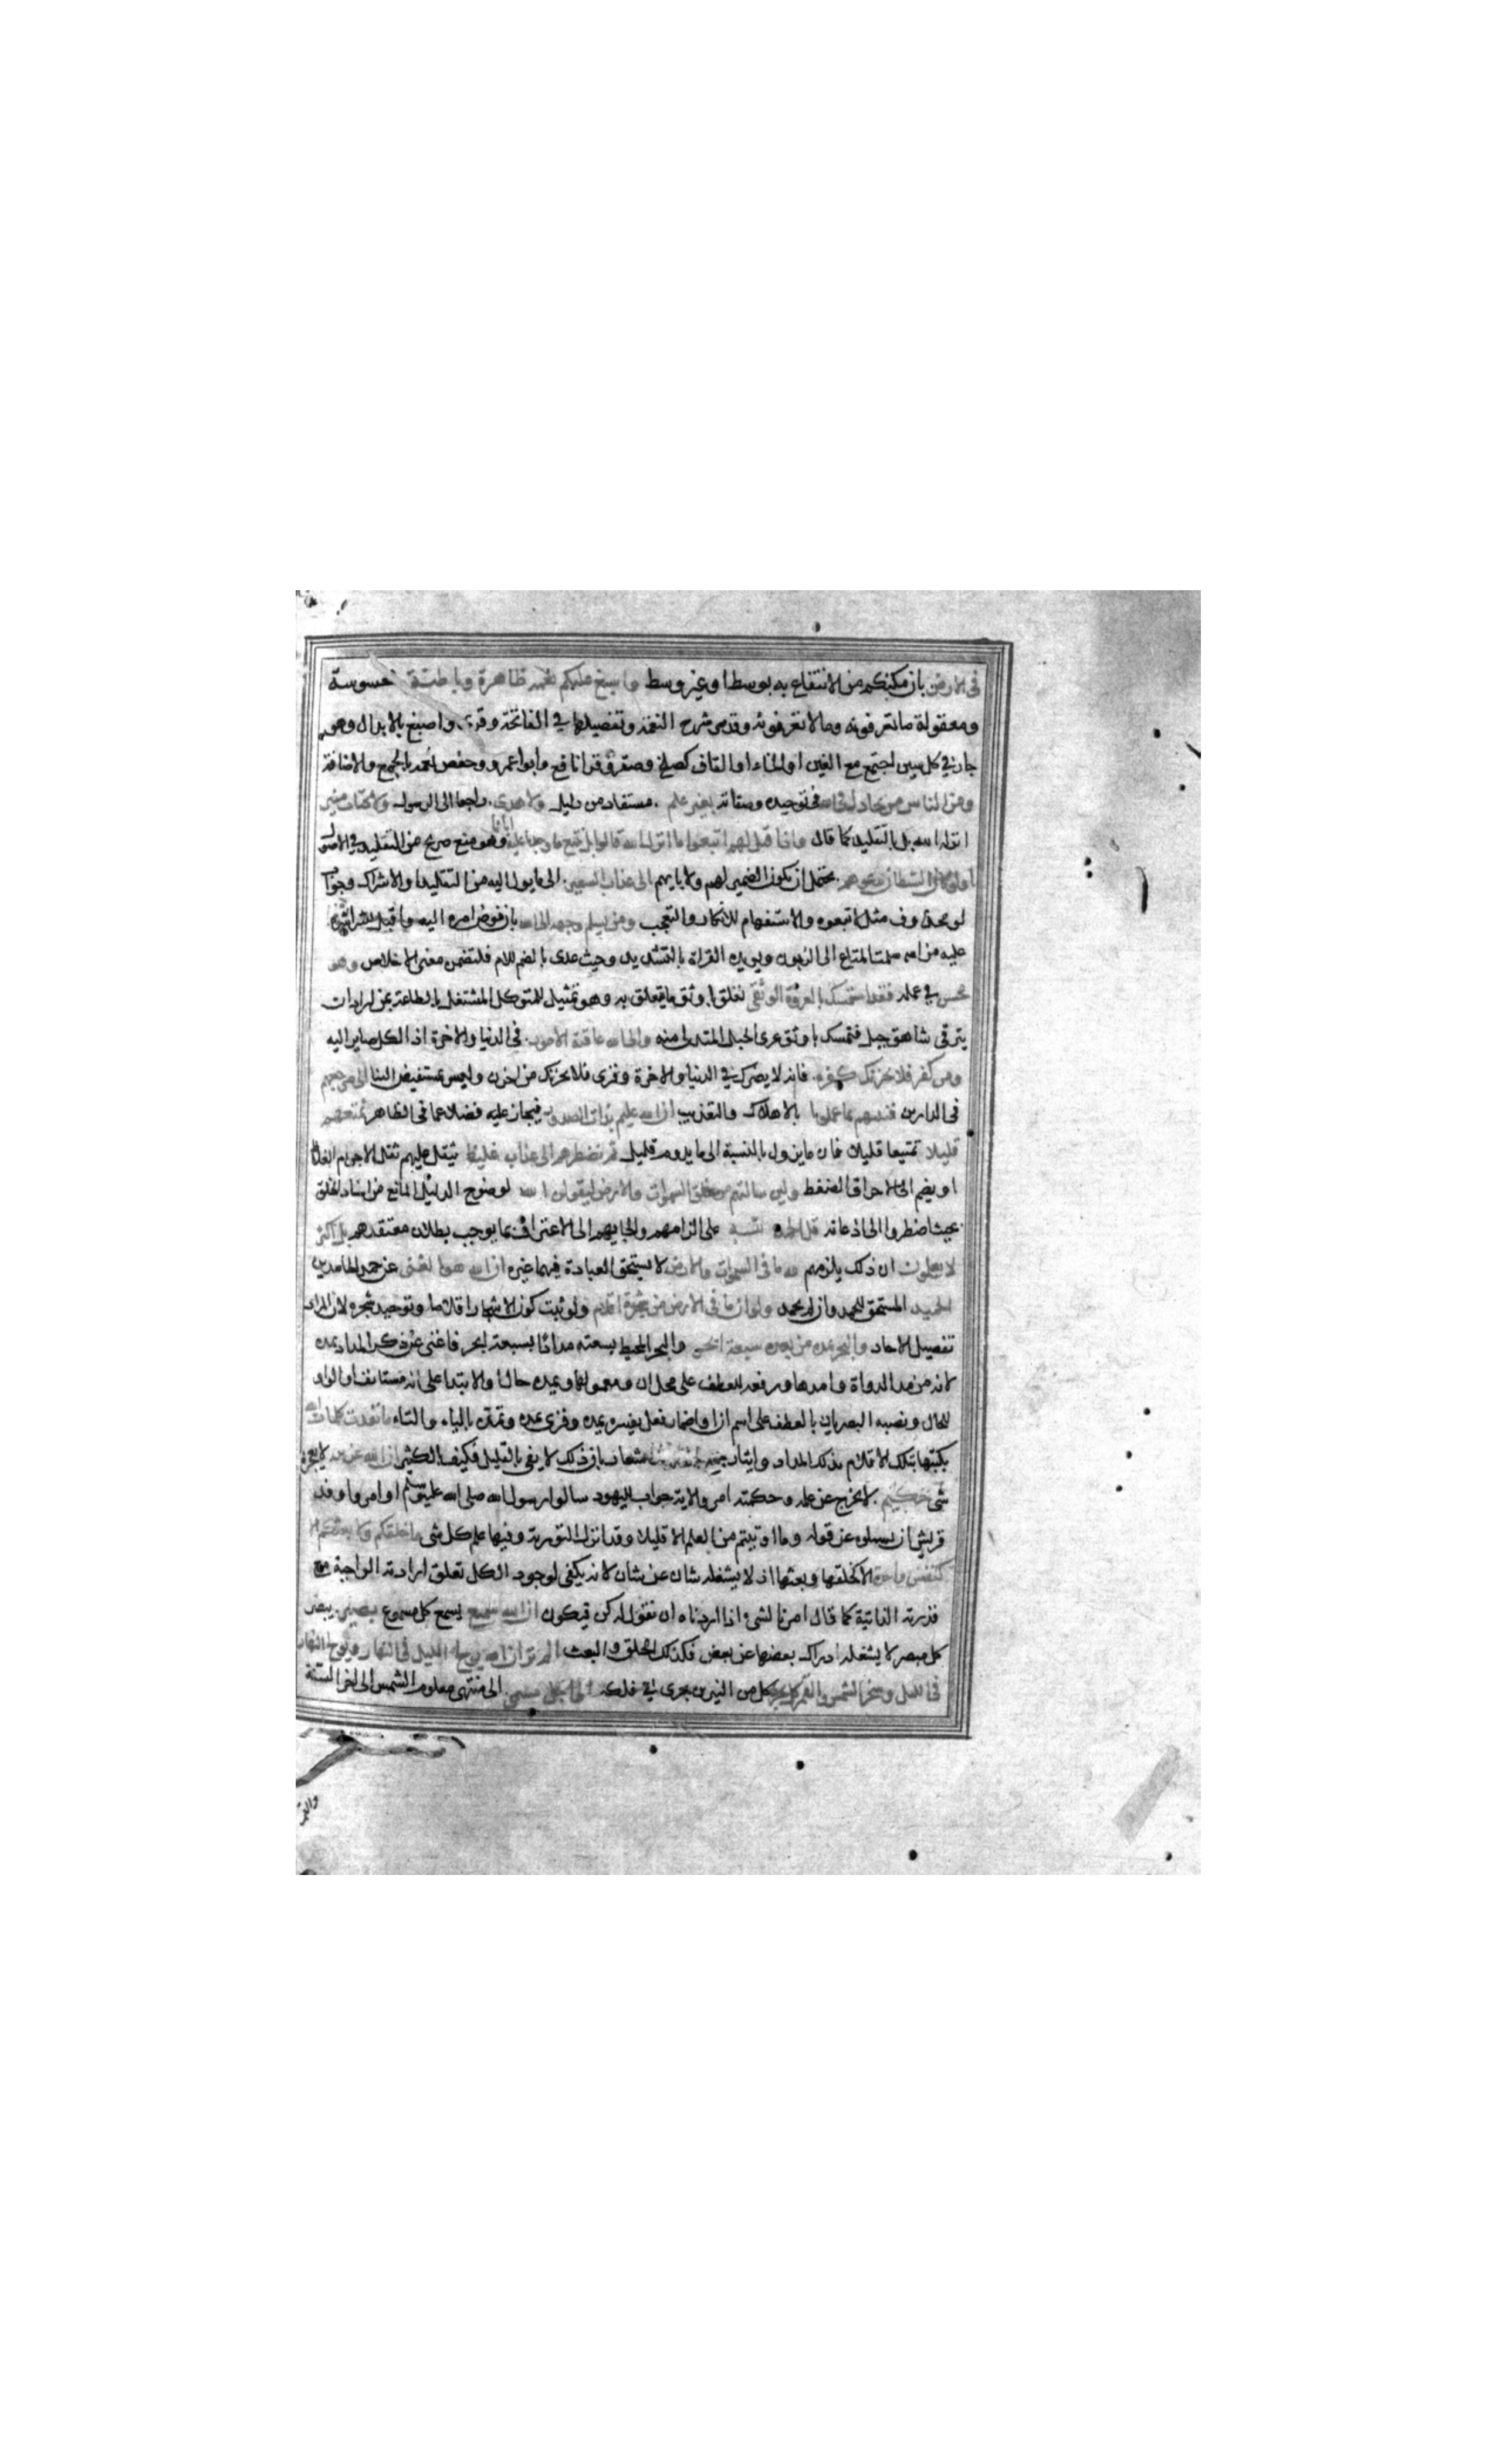 في الارض بان مكنكم من الانتفاع به بوسط او غير وسط واسبغ عليكم نعمه ظاهرة وباطنة محسوسة
ومعقولة ما تعرفونه وما لا تعرفونه وقد مر شرح النعمة وتفصيلها في الفاتحة وقرئ واصبغ بالابدال وهو
جار في كل سين اجتمع مع الغين او الخاء او القاف كصلخ وصقر وقرا نافع وابو عمرو وحفص نعمه بالجمع والاضافة
ومن الناس من يجادل في الله في توحيده وصفاته بغير علم مستفاد من دليل ولا هدى راجعا الى الرسول ولا كتاب منير
انزله الله بل بالتقليد كما قال واذا قيل لهم اتبعوا ما انزل الله قالوا بل نتبع ما وجدنا عليه اباءنا وهو منع صريح من التقليد في الاصول
اولو كان الشيطان يدعوهم يحتمل ان يكون الضمير لهم ولابايهم الى عذاب السعير الى ما يول اليه من التقليد او الاشراك وجواب
لو محذوف مثل لاتبعوه والاستفهام للانكار والتعجب ومن يسلم وجهه الى الله بان فوض امره اليه واقبل بشراشره
عليه من اسلمت المتاع الى الزبون ويويده القراة بالتشديد وحيث عدى باللام فلتضمن معنى الاخلاص وهو
محسن في عمله فقد استمسك بالعروة الوثقى تعلق باوثق ما يتعلق به وهو تمثيل للمتوكل المشتغل بالطاعة بمن اراد ان
يترقى شاهق جبل فتمسك باوثق عرى الحبل المتدلى منه والى الله عاقبة الامور في الدنيا والاخرة اذ الكل صاير اليه
ومن كفر فلا يحزنك كفره فانه لا يضرك في الدنيا والاخرة وقرئ فلا يحزنك من احزن وليس بمستفيض الينا مرجعهم
في الدارين فننبئهم بما عملوا بالاهلاك والتعذيب ان الله عليم بذات الصدور فيجاز عليه فضلا عما في الظاهر نمتعهم
قليلا تمتيعا قليلا فان ما يزول بالنسبة الى ما يدوم قليل ثم نضطرهم الى عذاب غليظ يثقل عليهم ثقل الاجرام الغلاظ
او يضم الى الاحراق الضغط ولئن سالتهم من خلق السموات والارض ليقولن الله لوضوح الدليل المانع من اسناد الخلق
بحيث اضطروا الى اذعانه قل الحمد لله على الزامهم والجايهم الى الاعتراف بما يوجب بطلان معتقدهم بل اكثرهم
لا يعلمون ان ذلك يلزمهم لله ما في السموات والارض لا يستحق العبادة فيهما غيره ان الله هو الغني عن حمد الحامدين
الحميد المستحق للحمد وان لم يحمد ولو ان ما في الارض من شجرة اقلام ولو ثبت كون الاشجار اقلاما وتوحيد شجرة لان المراد
تفصيل الاحاد والبحر يمده من بعده سبعة ابحر والبحر المحيط بسعته مدادا بسبعة ابحر فاغنى عن ذكر المداد يمده
لانه من مد الدواة وامدها ورفعه للعطف على محل ان ومعمولها ويمده حال او الابتدا على انه مستانف او الواو
للحال ونصبه البصريان بالعطف على اسم ان او اضمار فعل يفسره يمده وقرئ يمده وتمده بالياء والتاء ما نفدت كلمات الله
بكتبها بتلك الاقلام بذلك المداد وايثار جمع القلة للاشعار بان ذلك لا يفي بالقليل فكيف بالكثير ان الله عزيز لا يعجزه
شئ حكيم لا يخرج عن علمه وحكمته امر والاية جواب لليهود سالوا رسول الله صلى الله عليه وسلم او امروا وفد
قريش ان يسالوه عن قوله وما اوتيتم من العلم الا قليلا وقد انزل التورية وفيها علم كل شئ ما خلقكم ولا بعثكم الا
كنفس واحدة الا كخلقها وبعثها اذ لا يشغله شان عن شان لانه يكفي لوجود الكل تعلق ارادته الواجبة مع
قدرته الذاتية كما قال امرنا لشئ اذا اردناه ان نقول له كن فيكون ان الله سميع يسمع كل مسموع بصير يبصر
كل مبصر لا يشغله ادراك بعضها عن بعض فكذلك الخلق والبعث الم تر ان الله يولج الليل في النهار ويولج النهار
في الليل وسخر الشمس والقمر كل يجري كل من النيرين يجري في فلكه الى اجل مسمى الى منتهى معلوم الشمس الى اخر السنة
والقمر